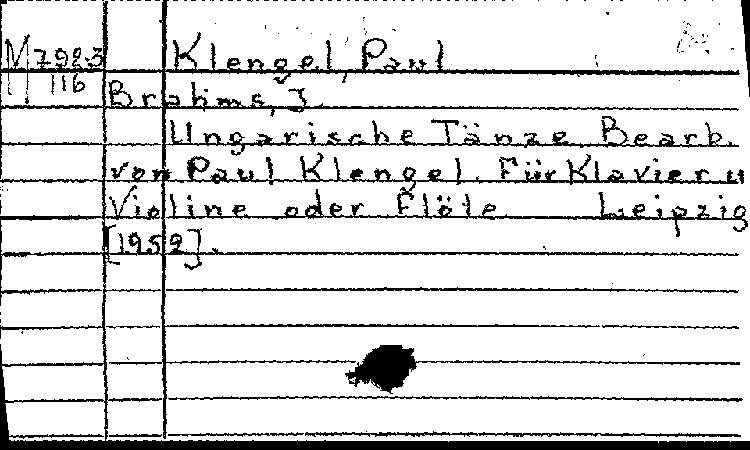 M 7923 Klengel, Paul
116 Brahms, J.
Ungarische Tänze. Bearb.
von Paul Klengel. Für Klavier u
Violine oder Flöte Leipzig
[1952].